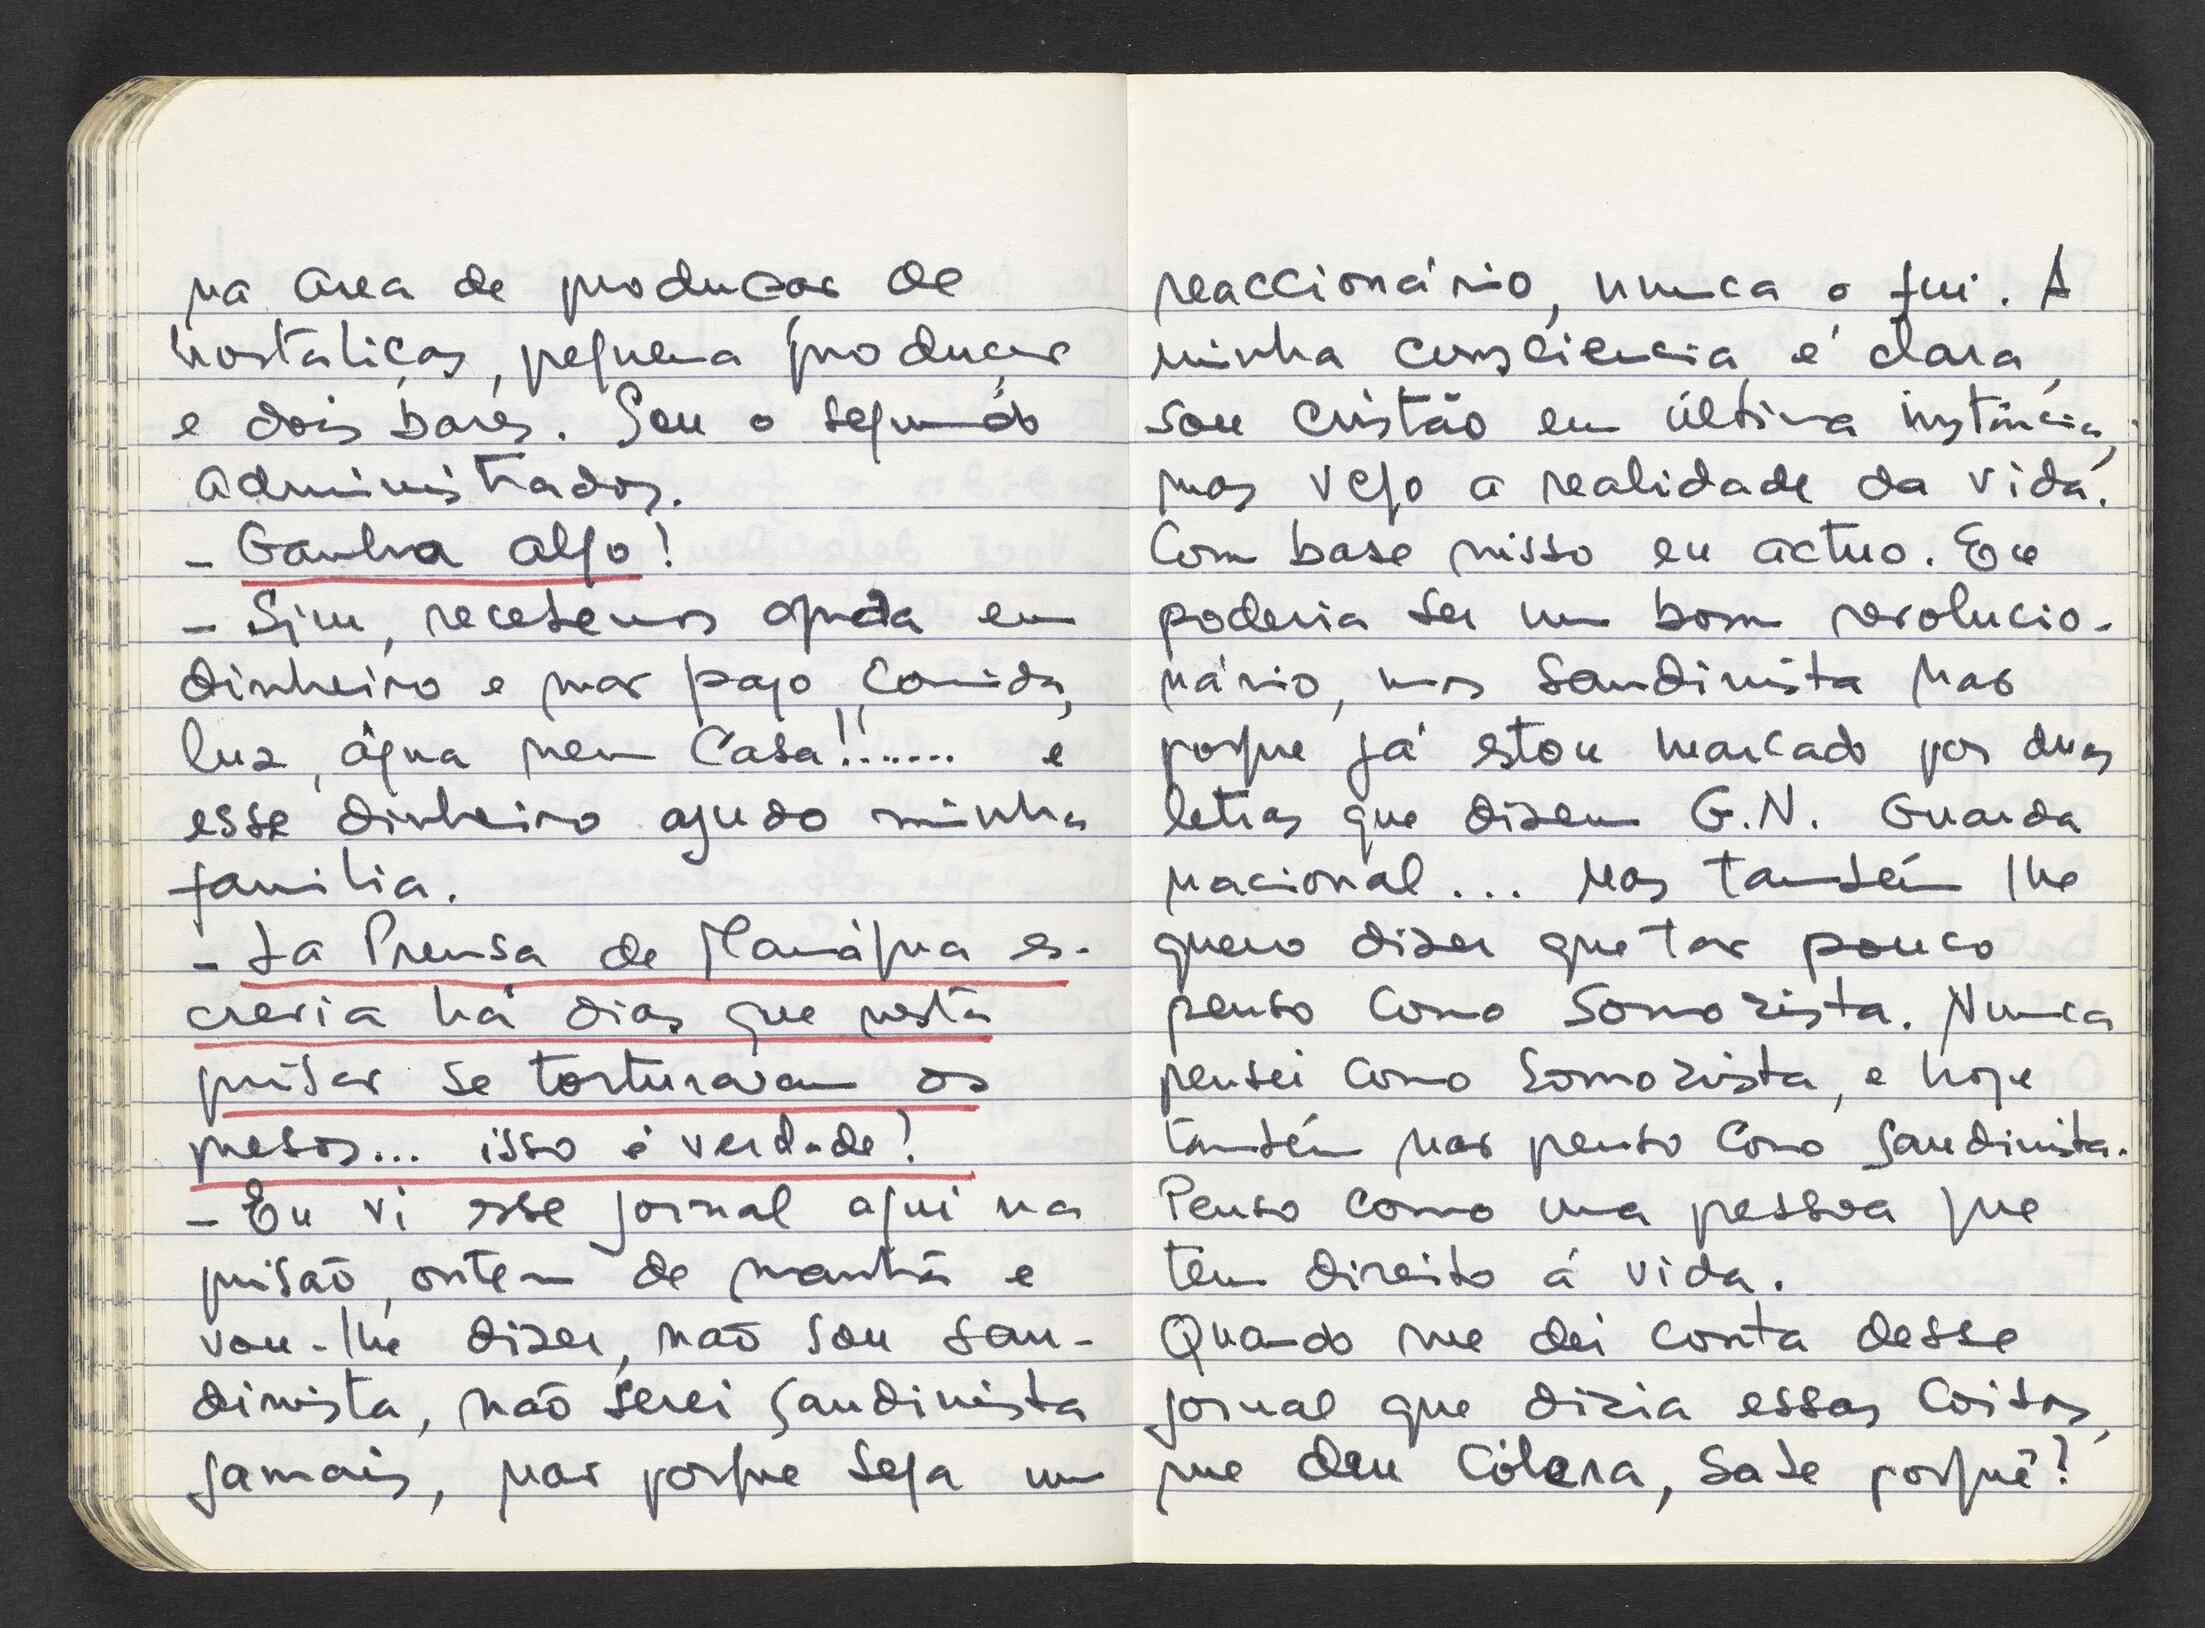 na area de produçao de
hortaliças, pequena produçao
e dois bares. Sou o segundo
administrador.
- Ganha algo?
- Sim, recebemos ajuda em
dinheiro e nao pago comida,
luz, água nem casa!!....... e
esse dinheiro ajudo minha
familia.
- La Prensa de Manágua es-
crevia há dias que nesta
prisao se torturavam os
presos... isso é verdade?
- Eu vi esse jornal aqui na
prisaõ, ontem de manhã e
vou-lhe dizer, naõ sou San-
dinista, naõ serei Sandinista
jamais, nao porque seja um
reaccionário, nunca o fui. A
minha consciencia é clara,
sou cristão em última instância,
mas vejo a realidade da vida.
Com base nisso eu actuo. Eu
poderia ser um bom revolucio-
nário, mas Sandinista nao
porque já estou marcado por duas
letras que dizem G.N. Guarda
nacional... Mas também lhe
quero dizer que tao pouco
penso como Somozista. Nunca
pensei como Somozista, e hoje
também nao penso como Sandinista.
Penso como uma pessoa que
tem direito á vida.
Quando me dei conta desse
jornal que dizia essas coisas,
me deu cólera, sabe porquê?